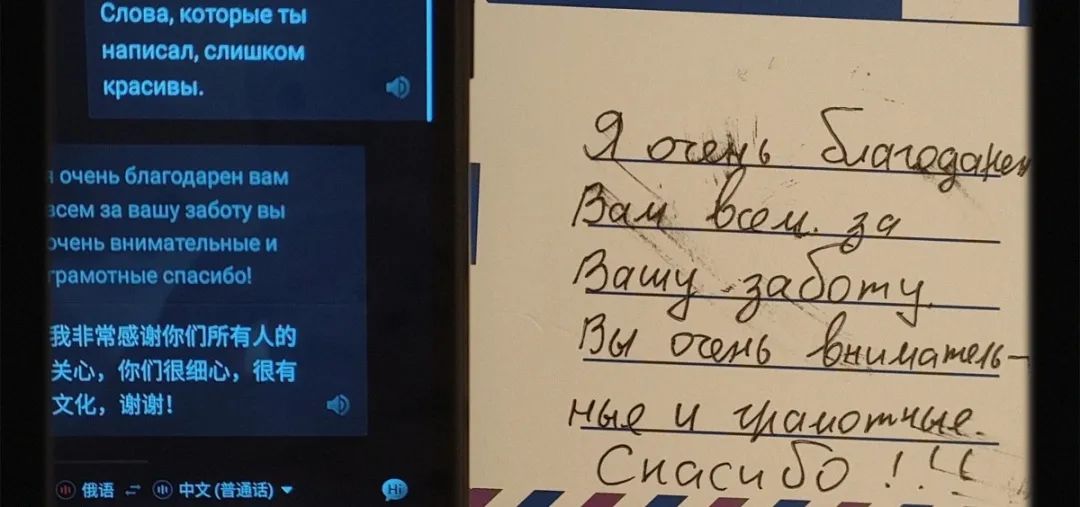 Слова, которые ты
написал, слишком
красивы.
я очень благодарен вам
всем за вашу заботу вы
очень внимательные и
грамотные спасибо!
我非常感谢你们所有人的
关心，你们很细心，很有
文化，谢谢！
俄语
中文 (普通话)
Hi
Я очень благодарен
Вам всем за
Вашу заботу.
Вы очень вниматель-
ные и грамотные.
Спасибо!!!